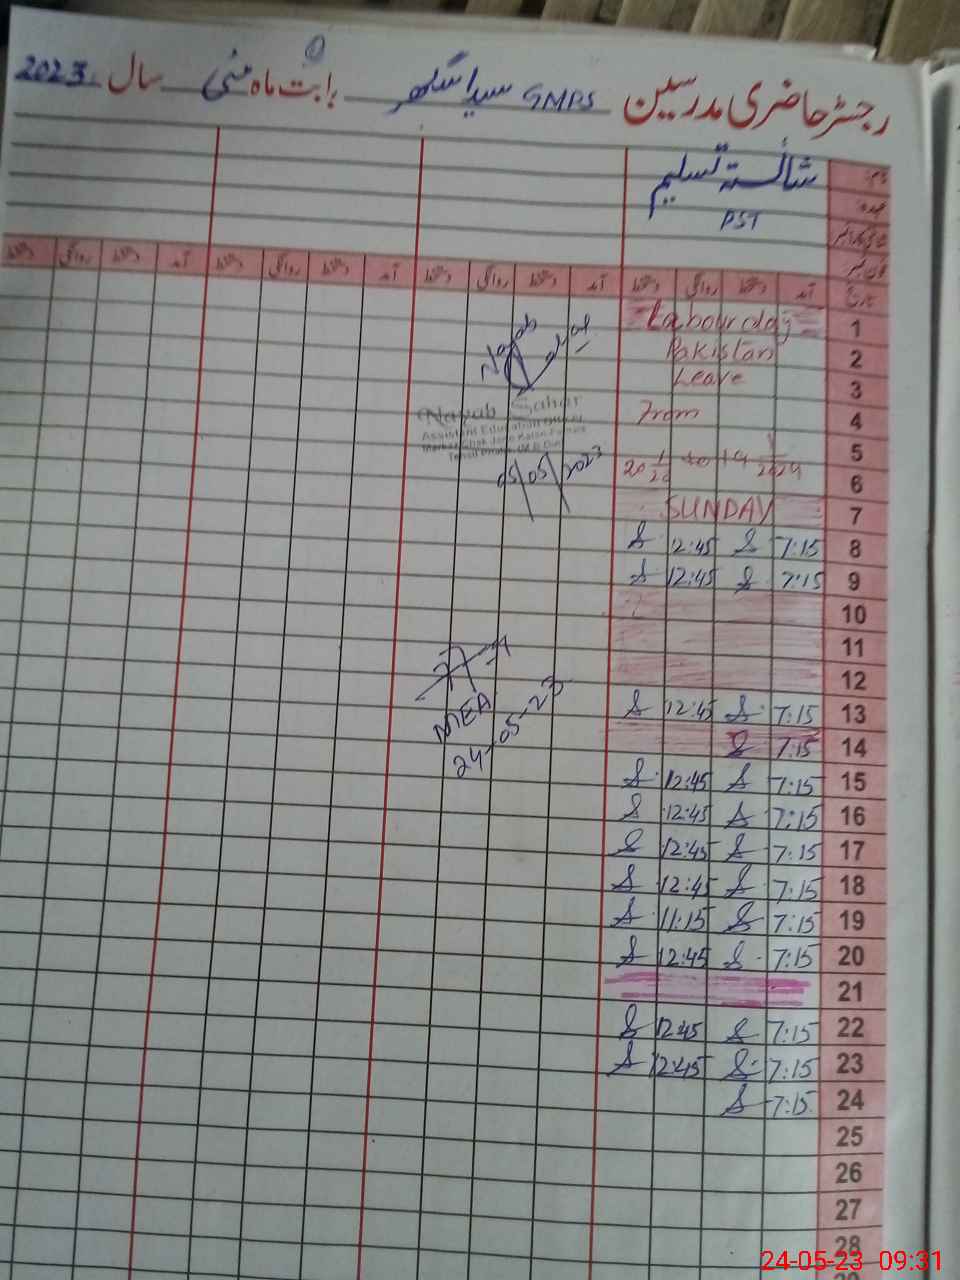 رجسٹر حاضری مدرسین GMPS سیداسگھر بابت ماہ مئی سال 2023
نام شائستہ تسلیم
عہدہ PST
تاریخ آمد دستخط روانگی دستخط آمد دستخط روانگی دستخط آمد دستخط روانگی دستخط آمد دستخط روانگی دستخط
1 Labour day
2 Pakistan
3 Leave
4 From
5
6
7 SUNDAY
8 7:15 S 12:45 S
9 7:15 S 12:45 S
10
11
12
13 7:15 S 12:45 S
14 7:15 S
15 7:15 S 12:45 S
16 7:15 S 12:45 S
17 7:15 S 12:45 S
18 7:15 S 12:45 S
19 7:15 S 11:15 S
20 7:15 S 12:45 S
21
22 7:15 S 12:45 S
23 7:15 S 12:45 S
24 7:15 S
25
26
27
28
Nayab Sahar
Assistant Education Officer
05/05/2023
MEA
24-05-23
24-05-23 09:31